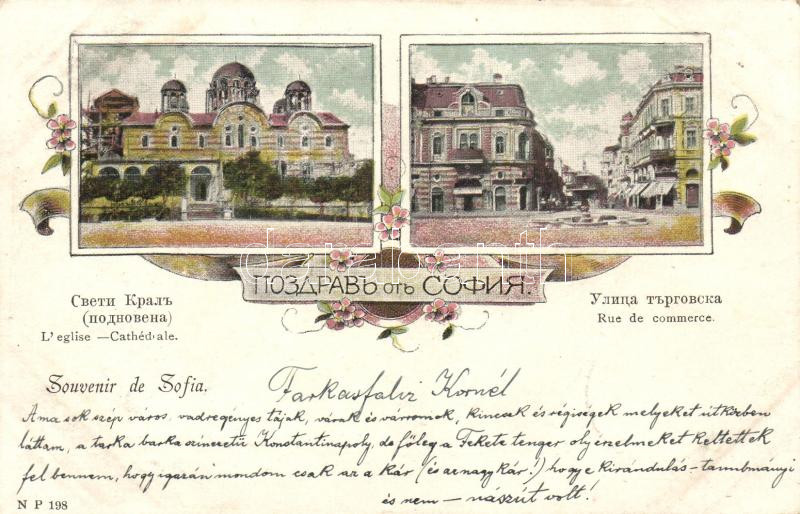 ПОЗДРАВЪ отъ СОФИЯ.
Свети Кралъ
(подновена)
L'eglise —Cathédrale.
Улица търговска
Rue de commerce.
Souvenir de Sofia.
Farkasfalvi Kornél
Ama sok szép város, vadregényes tájak, várak és várromok, kincsek és régiségek melyeket útközben
láttam, a tarka barka színezetű Konstantinápoly, de főleg a Fekete tenger oly érzelmeket keltettek
fel bennem, hogy igazán mondom csak az a kár (és az nagy kár!) hogy e kirándulás – tanulmányi
és nem – nászút volt!
N P 198